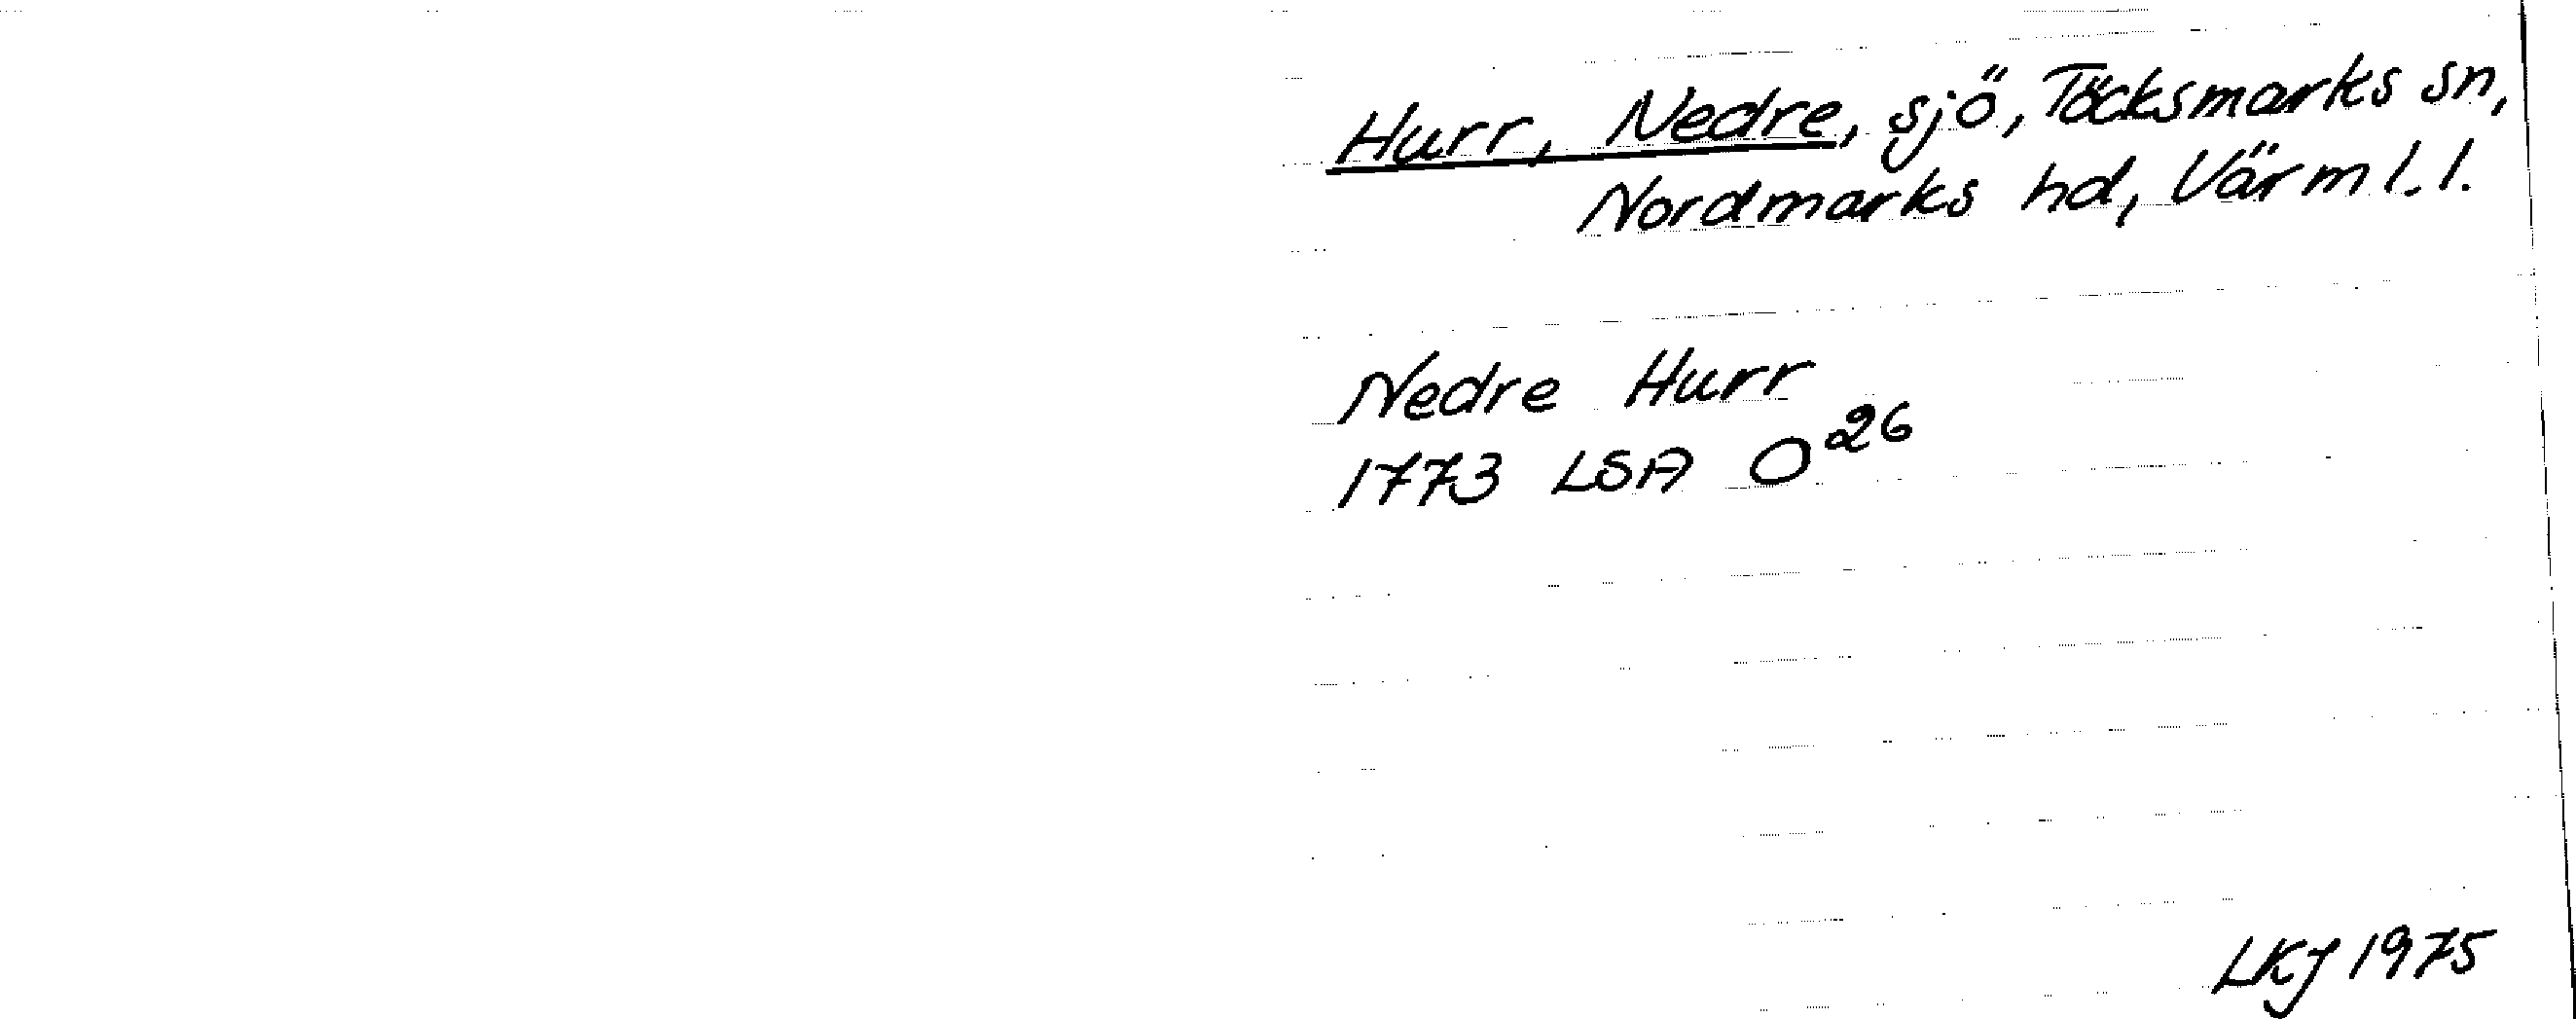 Hurr, Nedre, sjö, Töcksmarks sn,
Nordmarks hd, Värml. l.
Nedre Hurr
1773 LSA O26
LKJ 1975